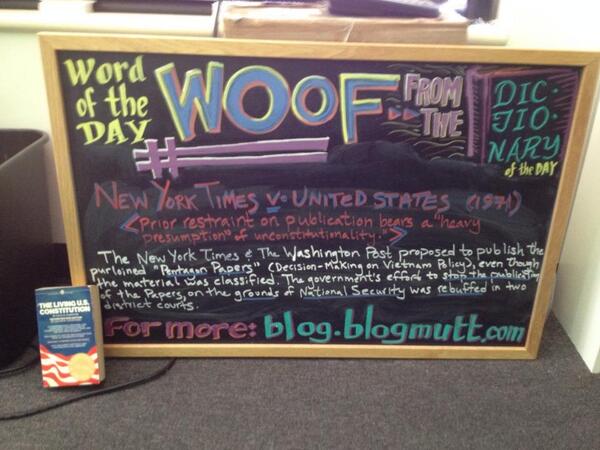 Word of the DAY
#WOOF
FROM THE
DIC·
TIO·
NARY
of the DAY
NEW YORK TIMES V. UNITED STATES (1971)
<Prior restraint on publication bears a "heavy
presumption" of unconstitutionality.">
The New York Times & The Washington Post proposed to publish the
purloined "Pentagon Papers" (Decision-Making on Vietnam Policy), even though
the material was classified. The government's effort to stop the publication
of the Papers, on the grounds of National Security was rebuffed in two
district courts.
For more: blog.blogmutt.com
THE LIVING U.S.
CONSTITUTION